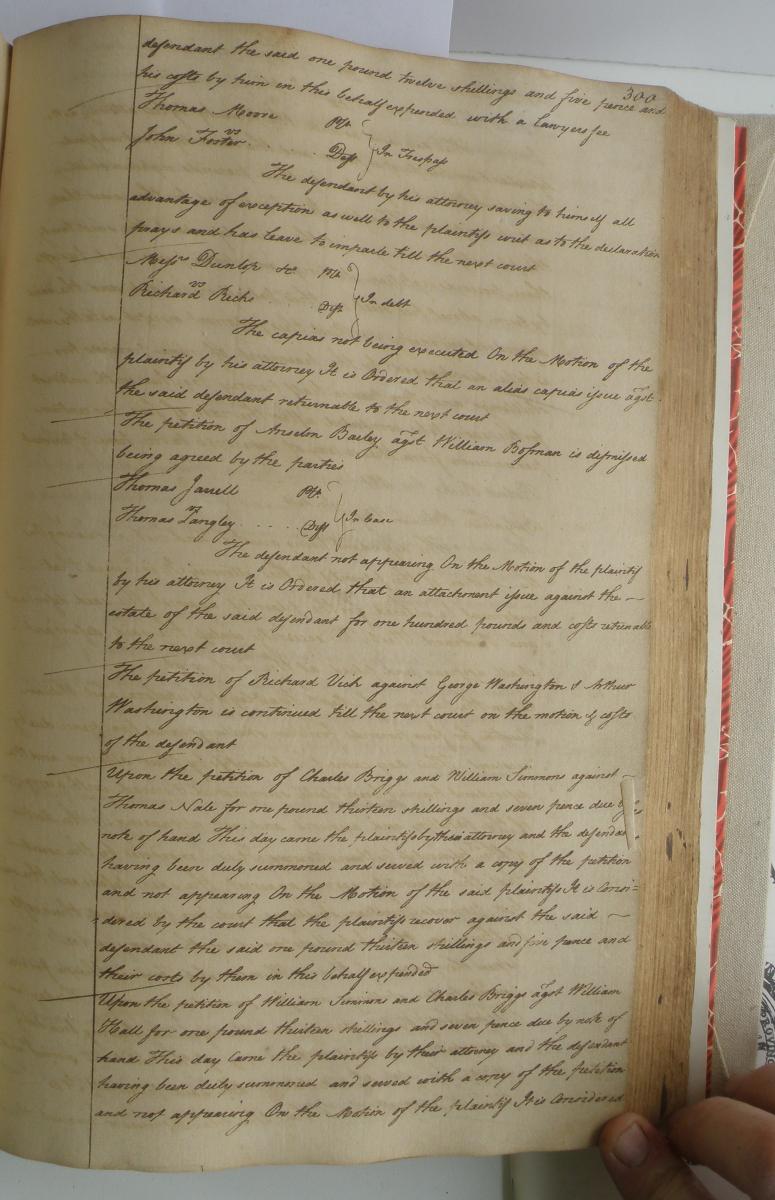 300
defendant the said one pound twelve shillings and five pence and
his costs by him in this behalf expended with a lawyers fee
Thomas Moore Plt.
vs
John Foster . . . . Deft } In Trespass
The defendant by his attorney saving to himself all
advantage of exception as well to the plaintifs writ as to the declaration
prays and has leave to imparle till the next court
Messrs Dunlop &c Plt.
vs
Richard Ricks Deft } In debt
The capias not being executed On the Motion of the
plaintif by his attorney It is Ordered that an alias capias issue agst
the said defendant returnable to the next court
The petition of Anselm Bailey agst William Bosman is dismissed
being agreed by the parties
Thomas Jarrell Plt.
vs
Thomas Langley . . . . . Deft } In Case
The defendant not appearing On the Motion of the plaintif
by his attorney It is Ordered that an attachment issue against the
estate of the said defendant for one hundred pounds and costs returnable
to the next court
The petition of Richard Vick against George Washington & Arthur
Washington is continued till the next court on the motion & costs
of the defendant
Upon the petition of Charles Briggs and William Simmons against
Thomas Nale for one pound thirteen shillings and seven pence due by
note of hand This day came the plaintifs by their attorney and the defendant
having been duly summoned and served with a copy of the petition
and not appearing On the Motion of the said plaintifs It is Consi=
dered by the court that the plaintifs recover against the said
defendant the said one pound thirteen shillings and five pence and
their costs by them in this behalf expended
Upon the petition of William Simmons and Charles Briggs agst William
Hall for one pound thirteen shillings and seven pence due by note of
hand This day Came the plaintifs by their attorney and the defendant
having been duly summoned and served with a copy of the petition
and not appearing On the Motion of the plaintif It is Considered